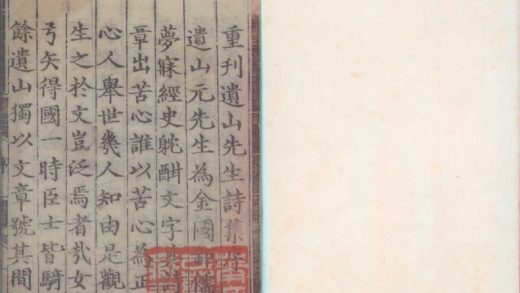 重刊遺山先生詩集序
遺山元先生為金國
夢寐經史躭酣文字
章出苦心誰以苦心為正
心人舉世幾人知由是觀
生之於文豈泛焉者㢤女
弓矢得國一時臣士皆騎
餘遺山獨以文章號其間